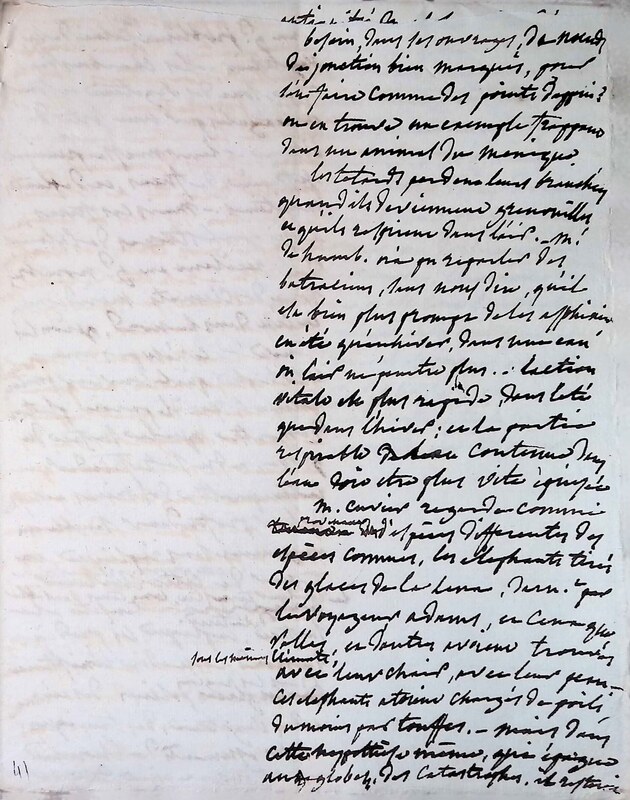 besoin, dans ses ouvrages, de nœuds
de jonction bien marqués, pour
s'en faire comme des points d'appui ?
on en trouve un exemple frappant
dans un animal du mexique
les tetards perdent leurs branchies
quand ils deviennent grenouilles
et qu'ils respirent dans l'air. — M.
de humb. qui regarder des
batraciens, tous nous dire, qu'il
est bien plus prompt de les asphixier
en été qu'en hiver, dans une eau
où l'air ne pénètre plus... l'action
vitale est plus rapide, dans l'été
que dans l'hiver ; et la partie
respirable contenue dans
l'eau doit etre plus vite épuisée
M. cuvier regarde comme
d'espèces differentes des
espèces connues, les elephants tirés
des glaces de la Lena, par
le voyageur adams, et ceux que
pallas, et d'autres avoient trouvés
sous les mêmes climats,
avec leur chair, avec leur peau —
ces elephants etoient chargés de poils
du moins par touffes. — mais dans
cette hypothese même, qui épargne
au globe, des catastrophes, il resteroit
41